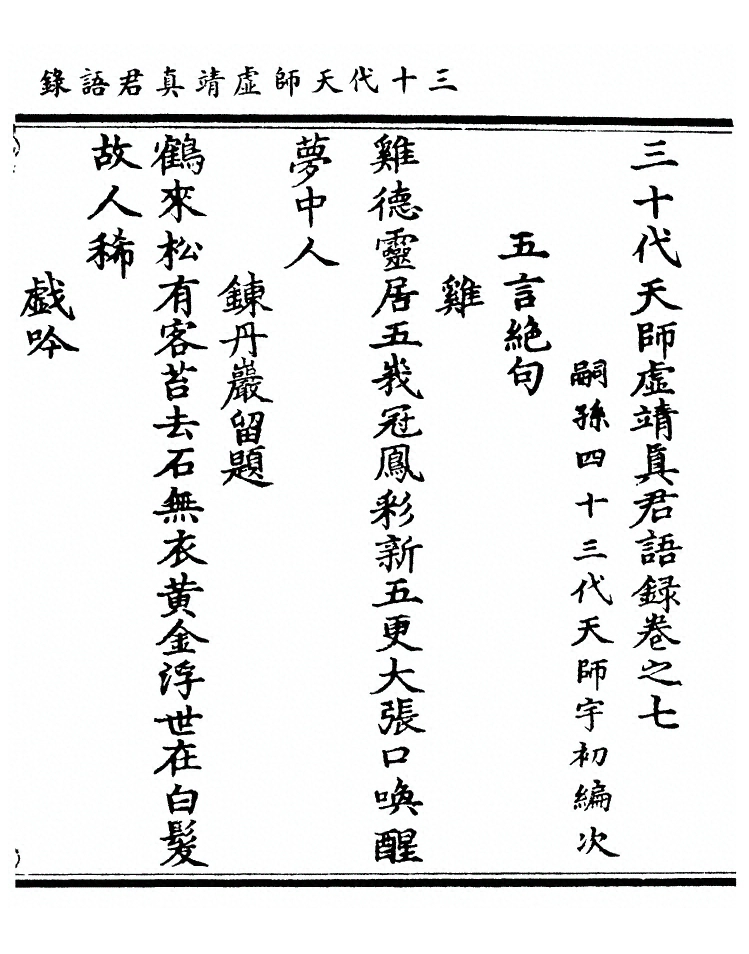 三十代天師虛靖真君語錄
三十代天師虛靖眞君語録卷之七
嗣孫四十三代天師宇初編次
五言絶句
雞
雞德靈居五峩冠鳳彩新五更大張口喚醒
夢中人
鍊丹巖留題
鶴來松有客苔去石無衣黄金浮世在白髮
故人稀
戯吟